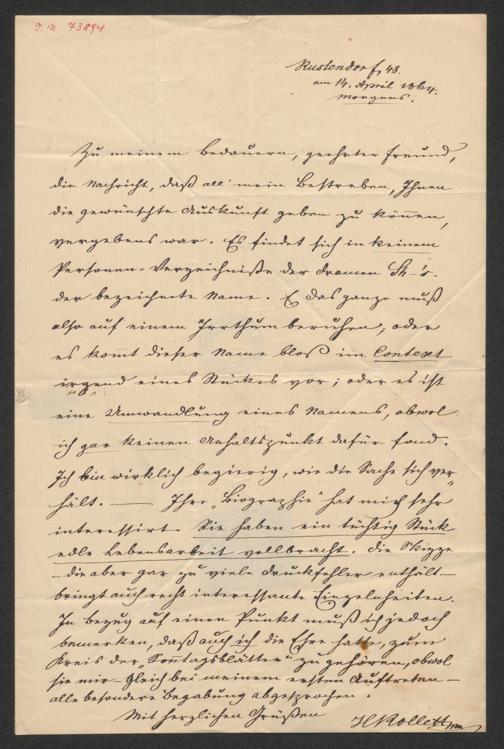 I. N. 73894
Rustendorf, 48.
am 14. April 1864.
Morgens.
Zu meinem Bedauern, geehrter Freund,
die Nachricht, daß all' mein Bestreben, Ihnen
die gewünschte Auskunft geben zu können,
vergebens war. Es findet sich in keinem
Personen-Verzeichniße der Dramen Sh-'s.
der bezeichnete Name. Das ganze muß
also auf einem Irrthum beruhen; oder
es kommt dieser Name blos im Context
irgend eines Stückes vor; oder es ist
eine Umwandlung eines Namens, obwol
ich gar keinen Anhaltspunkt dafür fand.
Ich bin wirklich begierig, wie die Sache sich ver-
hält. — Ihre „Biographie" hat mich sehr
interessirt. Sie haben ein tüchtig Stück
edle Lebensarbeit vollbracht. Die Skizze
– die aber gar zu viele Druckfehler enthält –
bringt auch recht interessante Einzelnheiten.
In bezug auf einen Punkt muß ich jedoch
bemerken, daß auch ich die Ehre hatte, zum
Kreis der „Sonntagsblätter" zu gehören, obwol
sie mir – gleich bei meinem ersten Auftreten –
alle besondere Begabung abgesprochen.
Mit herzlichen Grüßen
HRollett